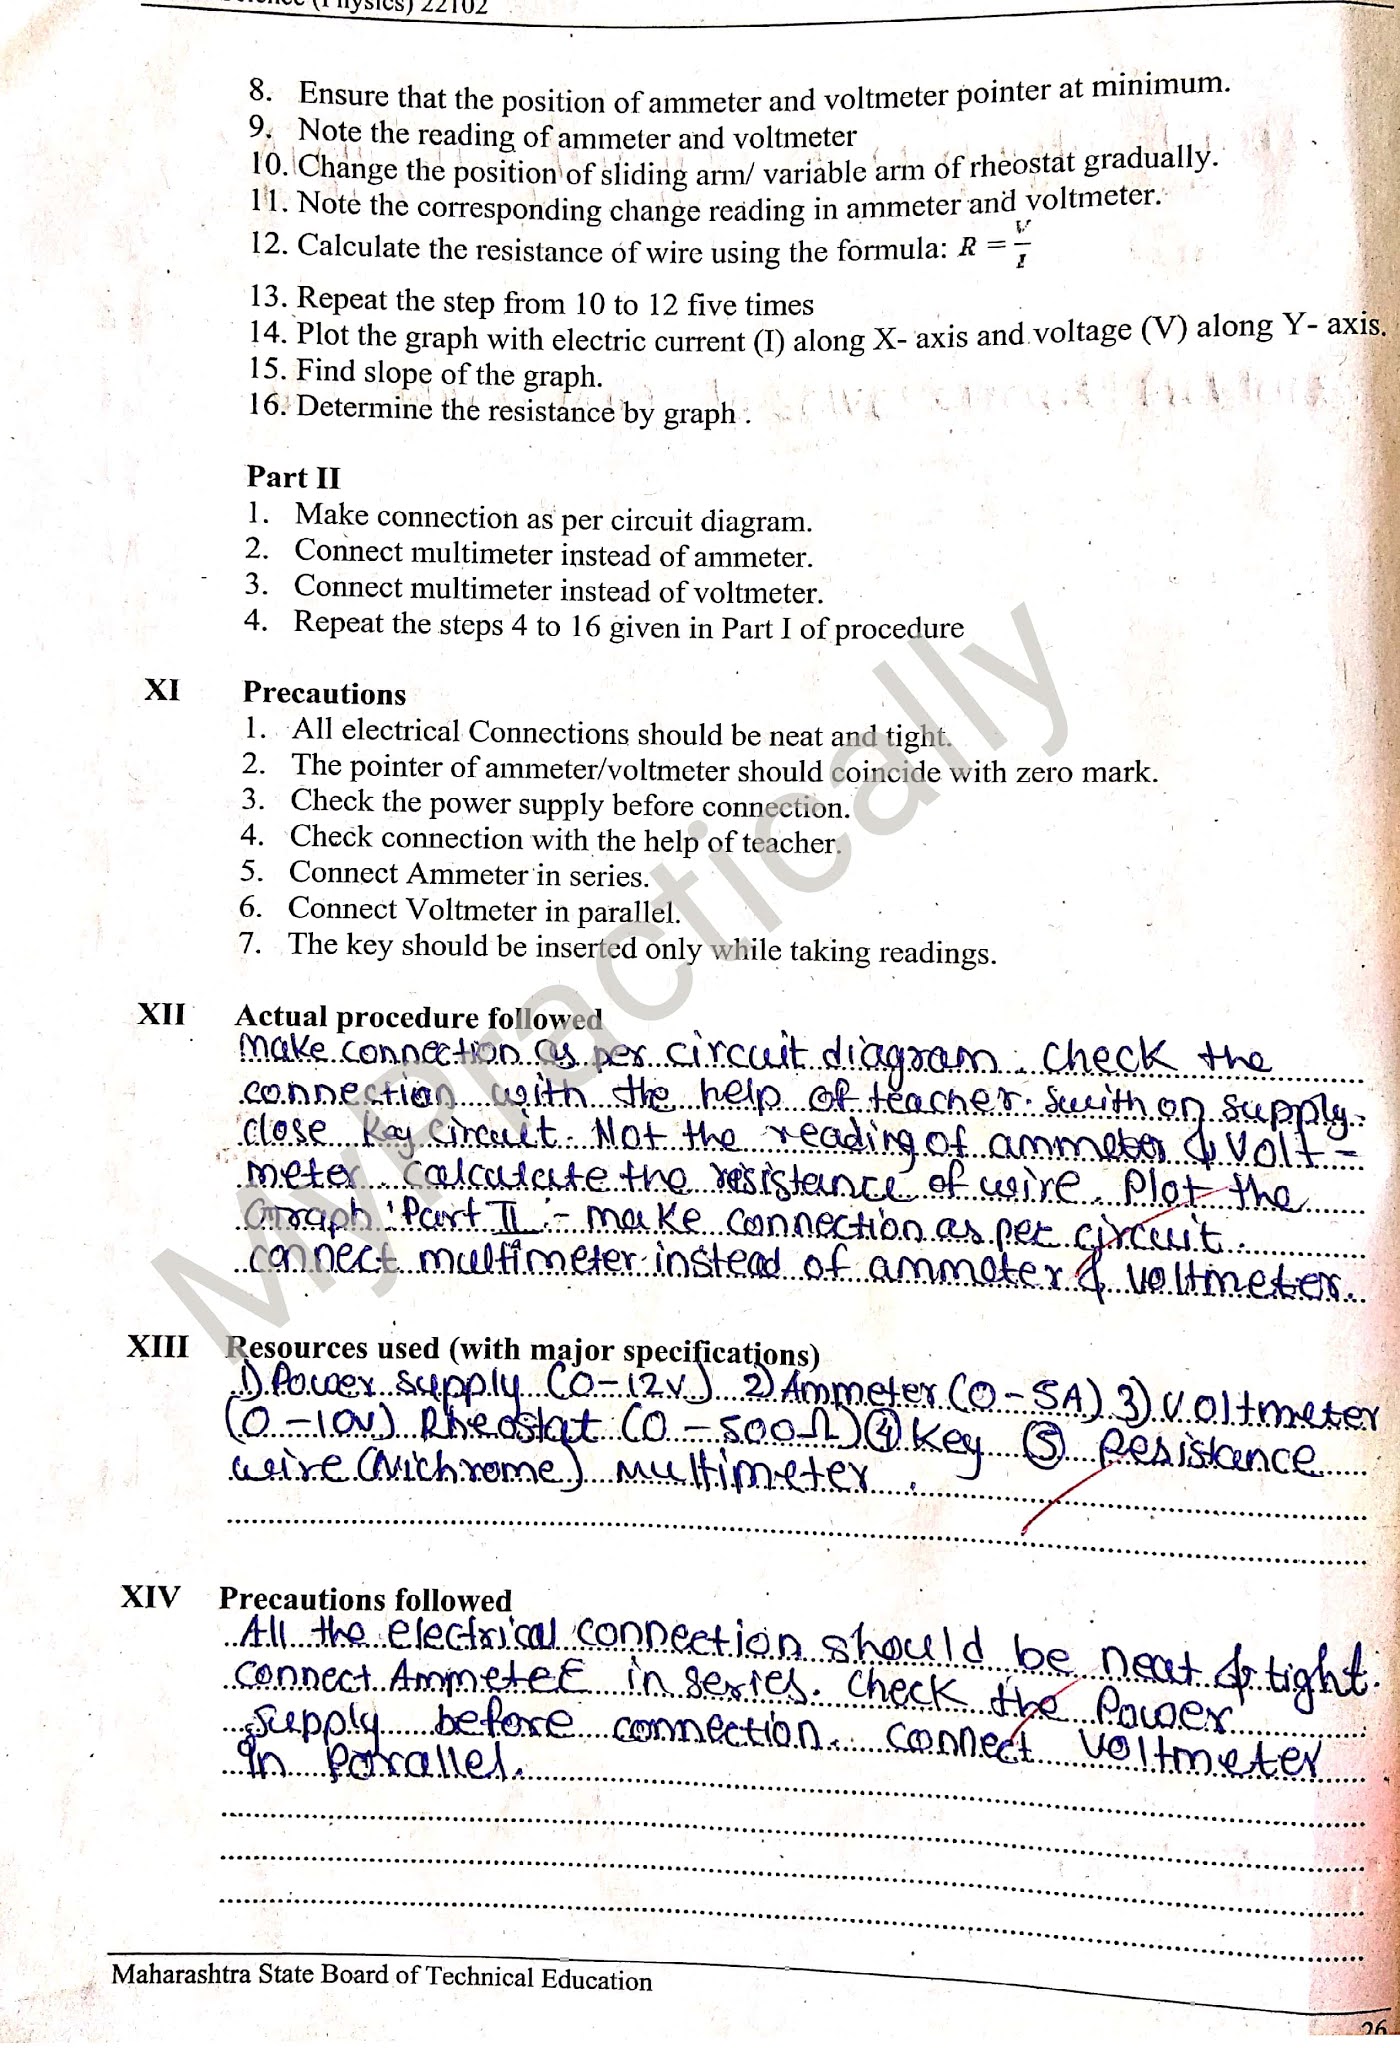 (Physics) 22102
8. Ensure that the position of ammeter and voltmeter pointer at minimum.
9. Note the reading of ammeter and voltmeter
10. Change the position of sliding arm/ variable arm of rheostat gradually.
11. Note the corresponding change reading in ammeter and voltmeter.
12. Calculate the resistance of wire using the formula: R = V/I
13. Repeat the step from 10 to 12 five times
14. Plot the graph with electric current (I) along X- axis and voltage (V) along Y- axis.
15. Find slope of the graph.
16. Determine the resistance by graph .
Part II
1. Make connection as per circuit diagram.
2. Connect multimeter instead of ammeter.
3. Connect multimeter instead of voltmeter.
4. Repeat the steps 4 to 16 given in Part I of procedure
XI Precautions
1. All electrical Connections should be neat and tight.
2. The pointer of ammeter/voltmeter should coincide with zero mark.
3. Check the power supply before connection.
4. Check connection with the help of teacher.
5. Connect Ammeter in series.
6. Connect Voltmeter in parallel.
7. The key should be inserted only while taking readings.
XII Actual procedure followed
make connection as per circuit diagram. Check the
connection with the help of teacher. Swith on supply.
close Key circuit. Not the reading of ammeter & Volt-
meter. calculate the resistance of wire. Plot the
Graph. Part II :- make connection as per circuit.
connect multimeter instead of ammeter & voltmeter.
XIII Resources used (with major specifications)
1) Power supply (0-12V) 2) Ammeter (0-5A) 3) Voltmeter
(0-10V) Rheostat (0-500Ω) ④ Key ⑤ Resistance
wire (Nichrome) Multimeter.
XIV Precautions followed
All the electrical connection should be neat & tight.
connect Ammeter in series. Check the Power
supply before connection. connect voltmeter
In Parallel.
Maharashtra State Board of Technical Education
26
MyPractically